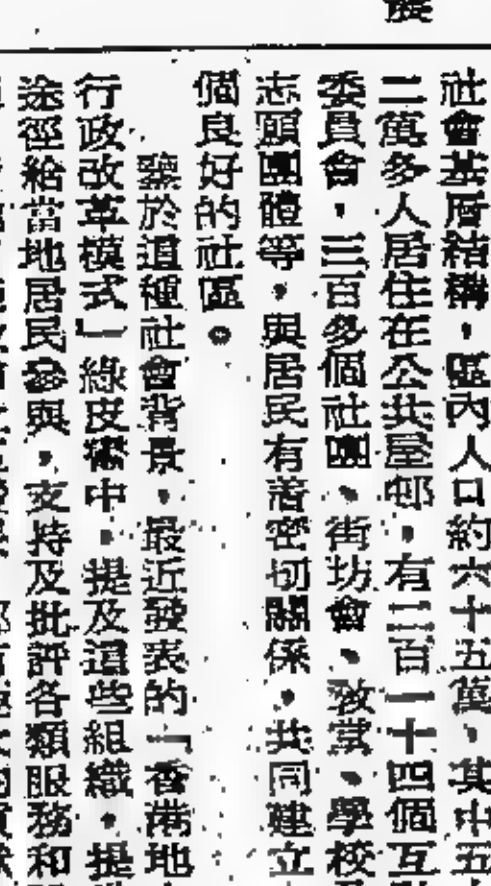 展
社會基層結構，區內人口約六十五萬、其中五
二萬多人居住在公共屋邨，有二百一十四個互
委員會，三百多個社團、街坊會、教堂、學校及
志願團體等，與居民有着密切關係，共同建立
個良好的社區。
鑒於這種社會背景，最近發表的「香港地
行政改革模式」綠皮書中，提及這些組織，提
途徑給當地居民參與，支持及批評各類服務和